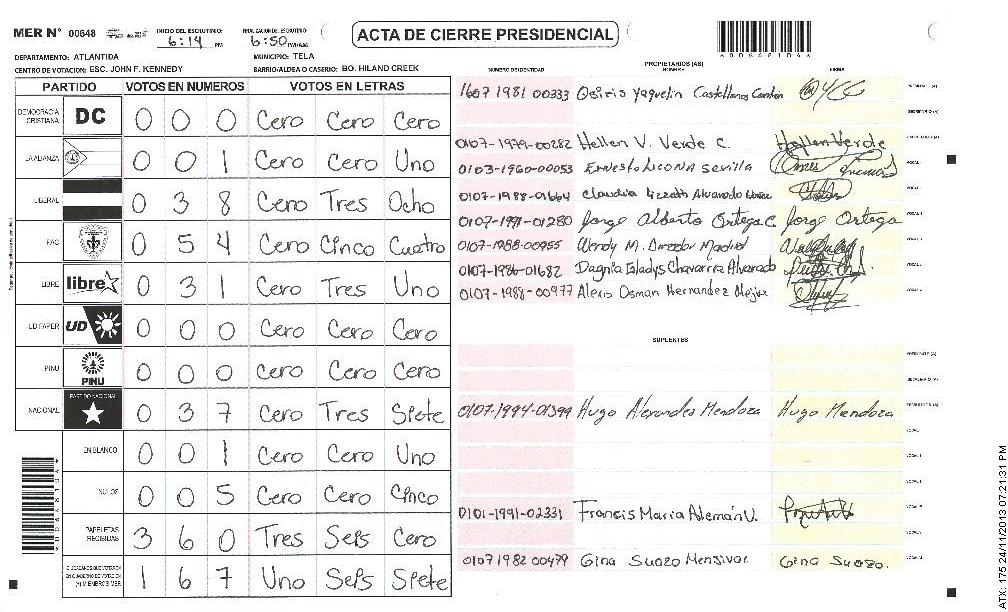 MER N° 00648
INICIO DEL ESCRUTINIO: 6:14 PM
FINALIZACION DE ESCRUTINIO: 6:50 PM/AM
ACTA DE CIERRE PRESIDENCIAL
DEPARTAMENTO: ATLANTIDA MUNICIPIO: TELA
CENTRO DE VOTACION: ESC. JOHN F. KENNEDY BARRIO/ALDEA O CASERIO: BO. HILAND CREEK
PARTIDO VOTOS EN NUMEROS VOTOS EN LETRAS
DEMOCRACIA CRISTIANA DC 0 0 0 Cero Cero Cero
LA ALIANZA 0 0 1 Cero Cero Uno
LIBERAL 0 3 8 Cero Tres Ocho
PAC 0 5 4 Cero Cinco Cuatro
LIBRE libre 0 3 1 Cero Tres Uno
UD FAPER UD 0 0 0 Cero Cero Cero
PINU PINU 0 0 0 Cero Cero Cero
NACIONAL PARTIDO NACIONAL 0 3 7 Cero Tres Siete
EN BLANCO 0 0 1 Cero Cero Uno
NULOS 0 0 5 Cero Cero Cinco
PAPELETAS RECIBIDAS 3 6 0 Tres Seis Cero
CIUDADANOS QUE VOTARON EN CUADERNO DE VOTACION (+) MIEMBROS MER 1 6 7 Uno Seis Siete
PROPIETARIOS (AS)
NUMERO DE IDENTIDAD NOMBRE FIRMA
1607 1981 00333 Osiris Yaquelin Castellanos
0107-1979-00282 Hellen V. Verde C. Hellen Verde
0103-1960-00053 Ernesto Licona Sevilla
0107-1988-01664 Claudia Lizzeth Alvarado
0107-1991-01280 Jorge Alberto Ortega C. Jorge Ortega
0107-1988-00955 Wendy M.
0107-1986-01682 Dagnia Gladys Chavarria Alvarado
0107-1988-00977 Alexis Osman Hernandez Mejia
SUPLENTES
0107-1994-01399 Hugo Mendoza Hugo Mendoza
0101-1991-02331 Francis Maria Alemán V.
0107 1982 00479 Gina Suazo Menjivar Gina Suazo.
ATX: 175 24/11/2013 07:21:31 PM